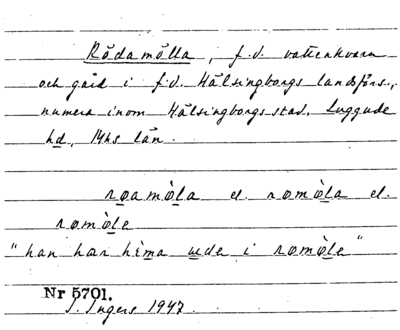 Rådamölla, f.d. vattenkvarn
och gård i f.d. Hälsingborgs landsförs.,
numera inom Hälsingborgs stad, Luggude
hd, Mhs län.
roamòla el. romòla el.
romòle
"han har hèma ude i romòle"
Nr 5701.
I. Ingers 1947